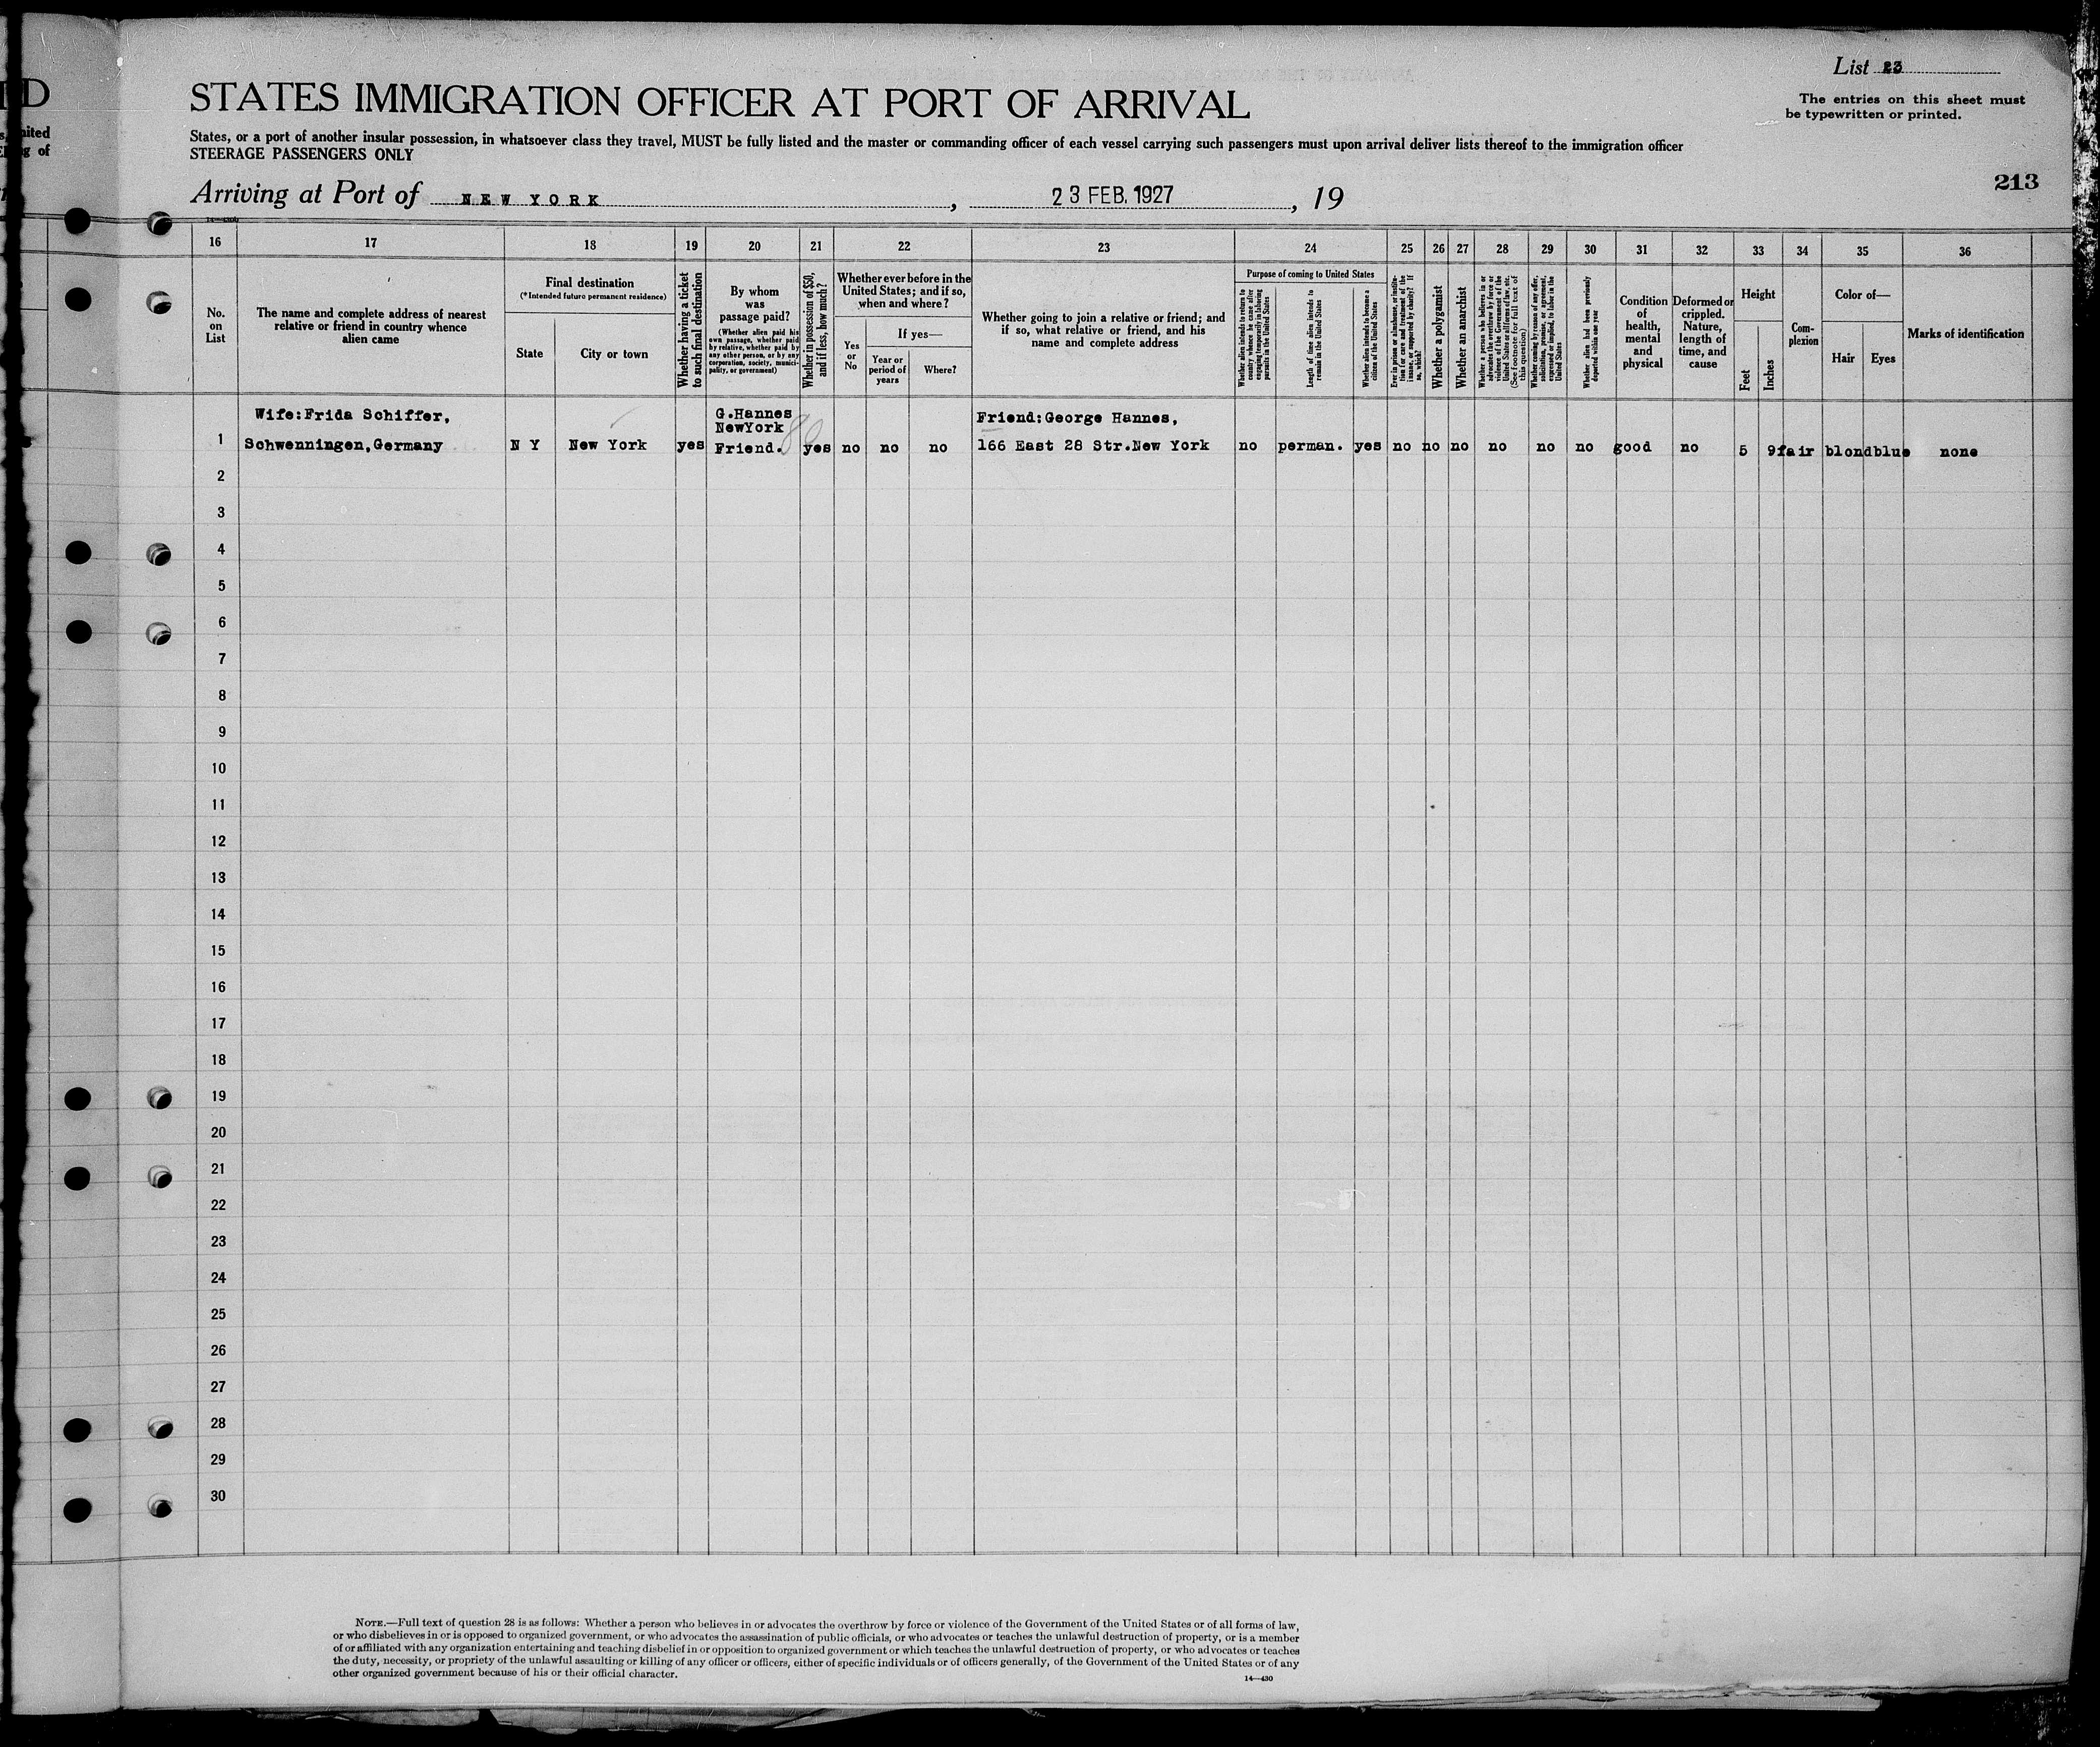 D
List 23
The entries on this sheet must
be typewritten or printed.
STATES IMMIGRATION OFFICER AT PORT OF ARRIVAL
States, or a port of another insular possession, in whatsoever class they travel, MUST be fully listed and the master or commanding officer of each vessel carrying such passengers must upon arrival deliver lists thereof to the immigration officer
STEERAGE PASSENGERS ONLY
213
Arriving at Port of NEW YORK, 23 FEB. 1927, 19
16 17 18 19 20 21 22 23 24 25 26 27 28 29 30 31 32 33 34 35 36
No.
on
List
The name and complete address of nearest
relative or friend in country whence
alien came
Final destination
(*Intended future permanent residence)
State
City or town
Whether having a ticket
to such final destination
By whom
was
passage paid?
(Whether alien paid his
own passage, whether paid
by relative, whether paid by
any other person, or by any
corporation, society, munici-
pality, or government)
Whether in possession of $50,
and if less, how much?
Whether ever before in the
United States; and if so,
when and where?
Yes
or
No
If yes—
Year or
period of
years
Where?
Whether going to join a relative or friend; and
if so, what relative or friend, and his
name and complete address
Purpose of coming to United States
Whether alien intends to return to
country whence he came after
engaging temporarily in laboring
pursuits in the United States
Length of time alien intends to
remain in the United States
Whether alien intends to become a
citizen of the United States
Ever in prison or almshouse, or institu-
tion for care and treatment of the
insane, or supported by charity? If
so, which?
Whether a polygamist
Whether an anarchist
Whether a person who believes in or
advocates the overthrow by force or
violence of the Government of the
United States or all forms of law, etc.
(See footnote for full text of
this question)
Whether coming by reason of any offer,
solicitation, promise, or agreement,
expressed or implied, to labor in the
United States
Whether alien had been previously
deported within one year
Condition
of
health,
mental
and
physical
Deformed or
crippled.
Nature,
length of
time, and
cause
Height
Feet
Inches
Com-
plexion
Color of—
Hair
Eyes
Marks of identification
Wife:Frida Schiffer,
G.Hannes
NewYork
Friend:George Hannes,
1 Schwenningen,Germany N Y New York yes Friend. yes no no no 166 East 28 Str.New York no perman. yes no no no no no no good no 5 9 fair blond blue none
2
3
4
5
6
7
8
9
10
11
12
13
14
15
16
17
18
19
20
21
22
23
24
25
26
27
28
29
30
NOTE.—Full text of question 28 is as follows: Whether a person who believes in or advocates the overthrow by force or violence of the Government of the United States or of all forms of law,
or who disbelieves in or is opposed to organized government, or who advocates the assassination of public officials, or who advocates or teaches the unlawful destruction of property, or is a member
of or affiliated with any organization entertaining and teaching disbelief in or opposition to organized government or which teaches the unlawful destruction of property, or who advocates or teaches
the duty, necessity, or propriety of the unlawful assaulting or killing of any officer or officers, either of specific individuals or of officers generally, of the Government of the United States or of any
other organized government because of his or their official character.
14—430